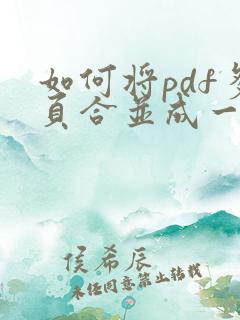 如何将pdf多
页合并成一
侯希辰
未经同意禁止转载